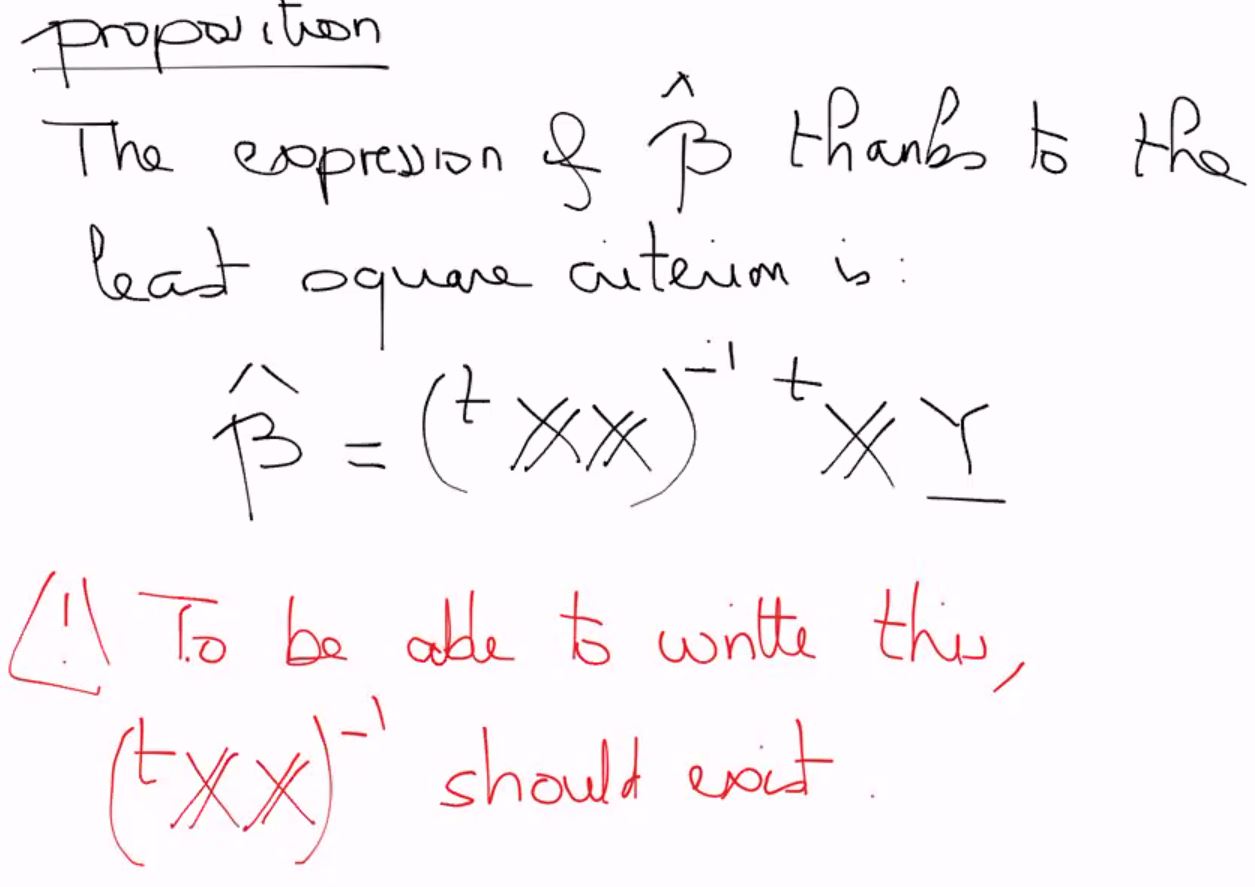 proposition
The expression of β̂ thanks to the
least square criterium is:
β̂ = (ᵗ𝕏𝕏)⁻¹ ᵗ𝕏 Y
⚠ To be able to writte this,
(ᵗ𝕏𝕏)⁻¹ should exist.